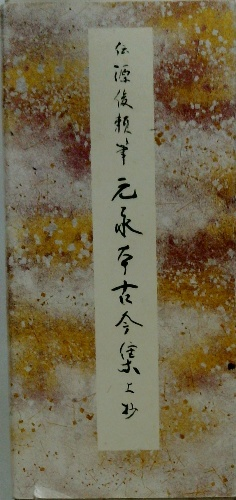 伝源俊頼筆 元永本古今集上抄